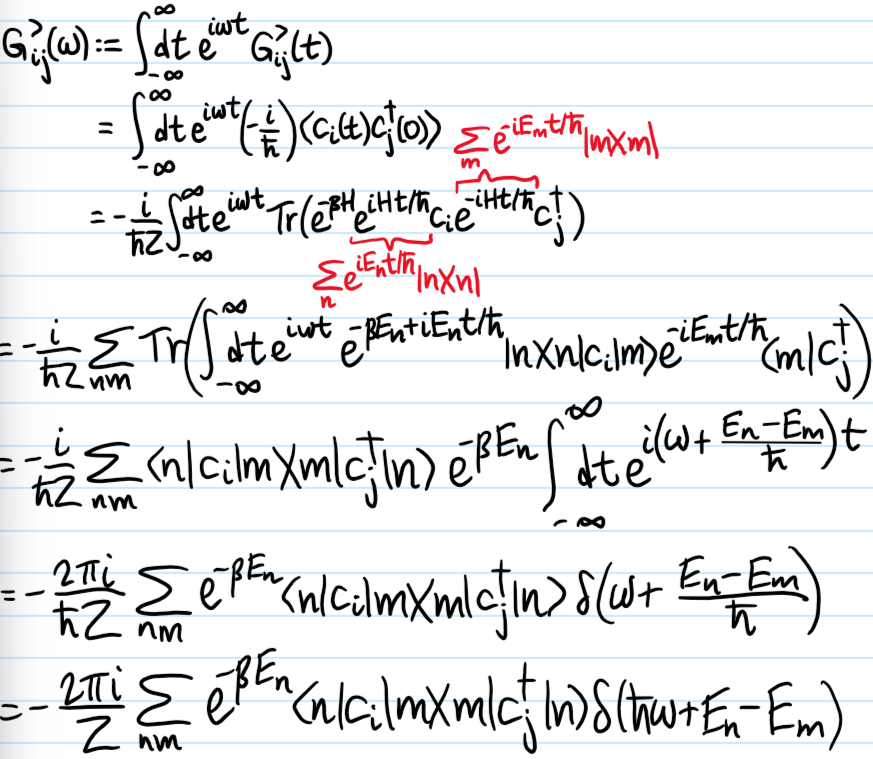 G^>_{ij}(ω) := ∫_{-∞}^{∞} dt e^{iωt} G^>_{ij}(t)
= ∫_{-∞}^{∞} dt e^{iωt} (-i/ħ) ⟨c_i(t) c_j^†(0)⟩
∑_m e^{-iE_m t/ħ} |m⟩⟨m|
= -i/(ħZ) ∫_{-∞}^{∞} dt e^{iωt} Tr(e^{-βH} e^{iHt/ħ} c_i e^{-iHt/ħ} c_j^†)
∑_n e^{iE_n t/ħ} |n⟩⟨n|
= -i/(ħZ) ∑_{nm} Tr(∫_{-∞}^{∞} dt e^{iωt} e^{-βE_n + iE_n t/ħ} |n⟩⟨n|c_i|m⟩ e^{-iE_m t/ħ} ⟨m|c_j^†)
= -i/(ħZ) ∑_{nm} ⟨n|c_i|m⟩⟨m|c_j^†|n⟩ e^{-βE_n} ∫_{-∞}^{∞} dt e^{i(ω + (E_n - E_m)/ħ)t}
= -2πi/(ħZ) ∑_{nm} e^{-βE_n} ⟨n|c_i|m⟩⟨m|c_j^†|n⟩ δ(ω + (E_n - E_m)/ħ)
= -2πi/Z ∑_{nm} e^{-βE_n} ⟨n|c_i|m⟩⟨m|c_j^†|n⟩ δ(ħω + E_n - E_m)